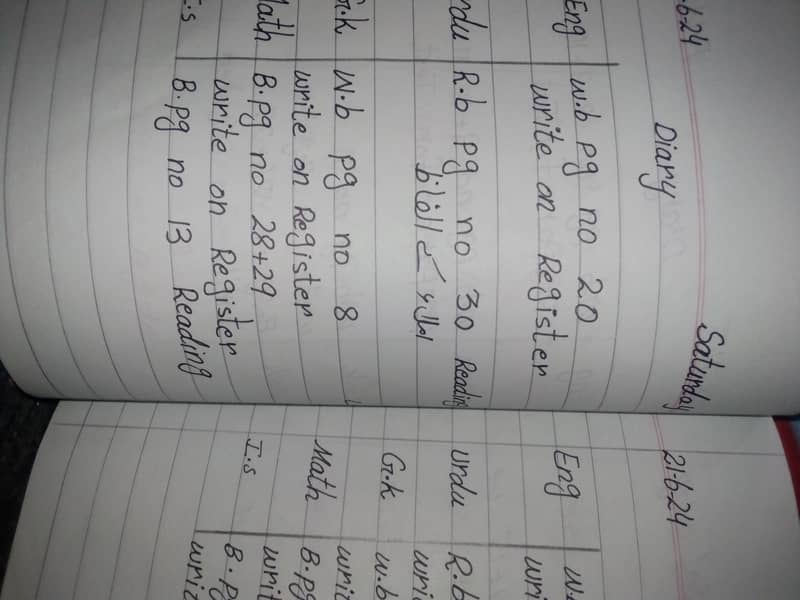 .6.24 Saturday
Diary
Eng W.b pg no 20
write on Register
rdu R.b pg no 30 Reading
املاء کے الفاظ
G.K W.b pg no 8
write on Register
Math B.pg no 28+29
write on Register
I.s B.pg no 13 Reading
21-6-24
Eng W.
wri
Urdu R.b
wri
G.K W.b
wri
Math B.pg
writ
I.s B.pg
writ